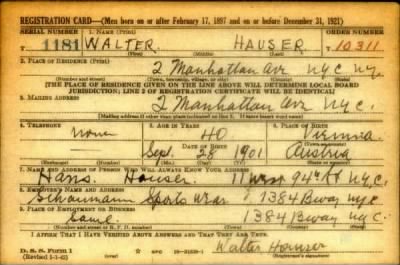 REGISTRATION CARD—(Men born on or after February 17, 1897 and on or before December 31, 1921)
SERIAL NUMBER 1. NAME (Print) ORDER NUMBER
T 1181 WALTER HAUSER T 10311
(First) (Middle) (Last)
2. PLACE OF RESIDENCE (Print)
2 Manhattan Ave N.Y.C. N.Y.
(Number and street) (Town, township, village, or city) (County) (State)
[THE PLACE OF RESIDENCE GIVEN ON THE LINE ABOVE WILL DETERMINE LOCAL BOARD
JURISDICTION; LINE 2 OF REGISTRATION CERTIFICATE WILL BE IDENTICAL]
3. MAILING ADDRESS
2 Manhattan Ave N.Y.C.
[Mailing address if other than place indicated on line 2. If same insert word same]
4. TELEPHONE 5. AGE IN YEARS 6. PLACE OF BIRTH
none 40 Vienna
DATE OF BIRTH
Sept. 28 1901 Austria
(Exchange) (Number) (Mo.) (Day) (Yr.) (State or country)
7. NAME AND ADDRESS OF PERSON WHO WILL ALWAYS KNOW YOUR ADDRESS
Hans. Hauser. 94th St N.Y.C.
8. EMPLOYER'S NAME AND ADDRESS
Sports Wear 1384 Bway N.Y.C.
9. PLACE OF EMPLOYMENT OR BUSINESS
Same. 1384 Bway N.Y.C.
(Number and street or R. F. D. number) (Town) (County) (State)
I AFFIRM THAT I HAVE VERIFIED ABOVE ANSWERS AND THAT THEY ARE TRUE.
D. S. S. Form 1
(Revised 1-1-42) GPO Walter Hauser